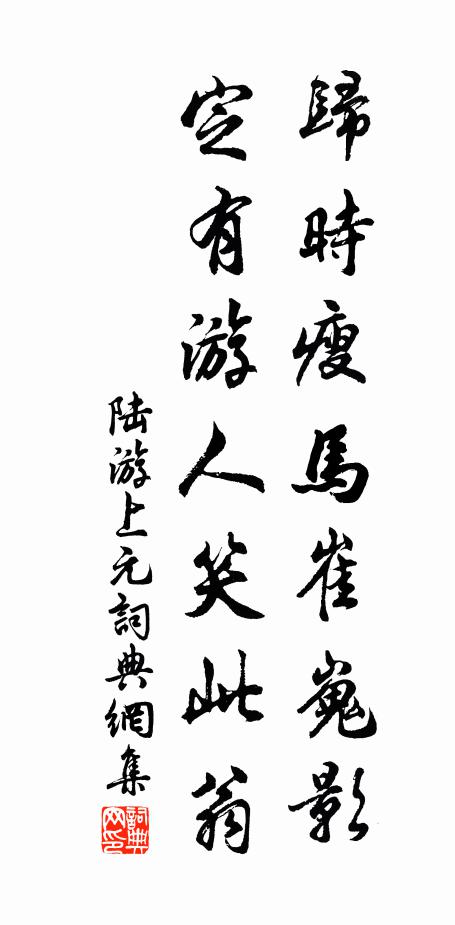 歸時瘦馬崔嵬影
定有游人笑此翁
陸游上元詞典網集
詞典网印